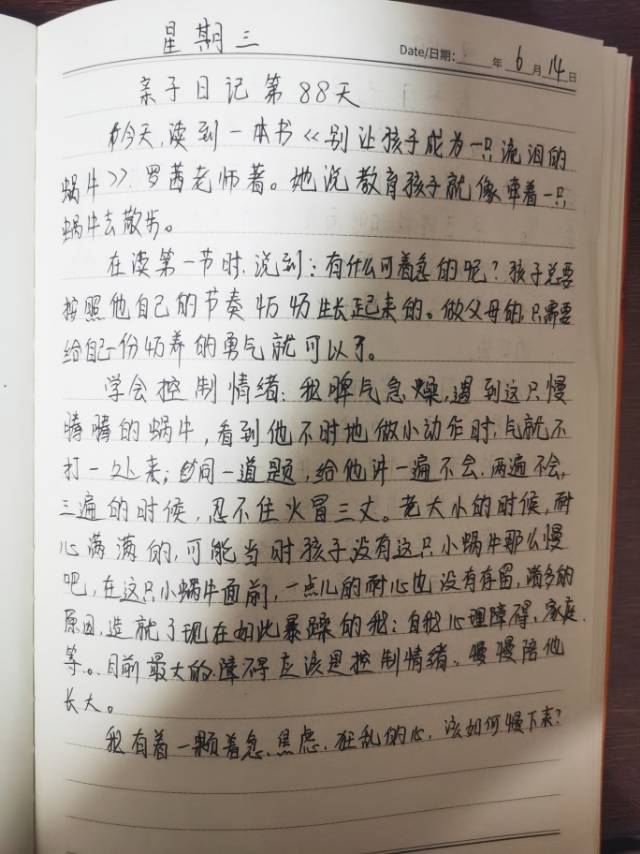 星期三
Date/日期: 年 6 月 14 日
亲子日记第88天
今天,读到一本书《别让孩子成为一只流泪的
蜗牛》罗茜老师著。她说教育孩子就像牵着一只
蜗牛去散步。
在读第一节时,说到:有什么可着急的呢?孩子总要
按照他自己的节奏巧巧生长起来的。做父母的只需要
给自己一份巧养的勇气就可以了。
学会控制情绪:我脾气急燥,遇到这只慢
腾腾的蜗牛,看到他不时地做小动作时,气就不
打一处来;同一道题,给他讲一遍不会,两遍不会,
三遍的时候,忍不住火冒三丈。老大小的时候,耐
心满满的,可能当时孩子没有这只小蜗牛那么慢
吧,在这只小蜗牛面前,一点儿的耐心也没有存留,诸多的
原因,造就了现在如此暴躁的我:自我心理障碍、家庭
等。目前最大的障碍应该是控制情绪。慢慢陪他
长大。
我有着一颗着急、焦虑、狂乱的心,该如何慢下来?